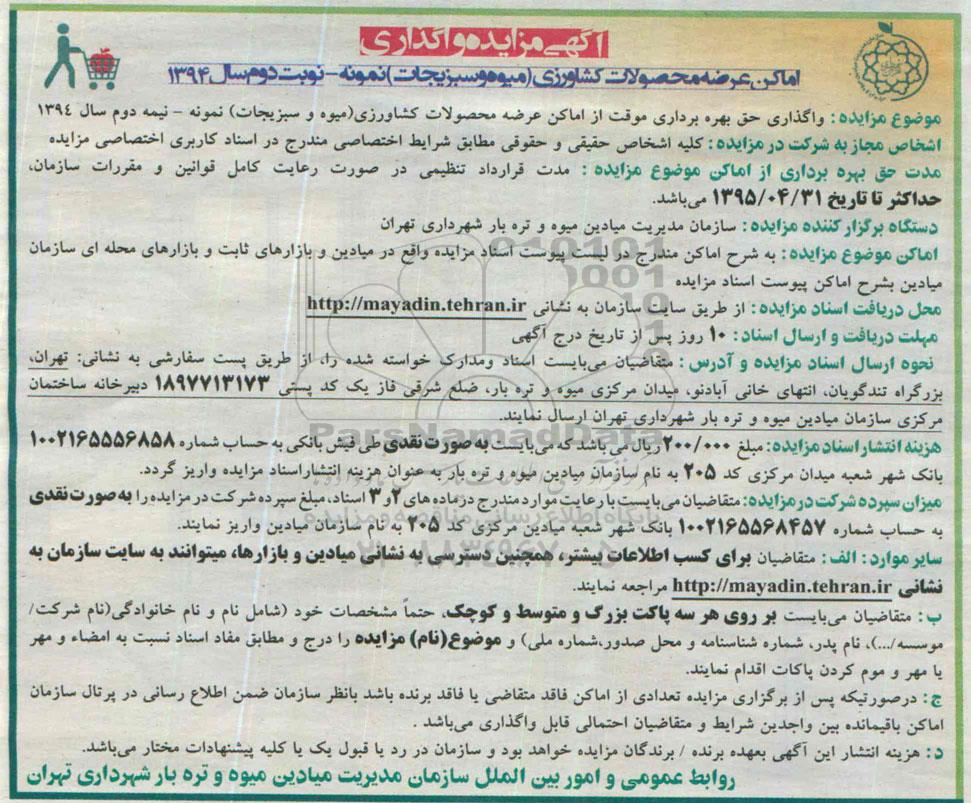 آگهی مزایده واگذاری
اماکن عرضه محصولات کشاورزی (میوه و سبزیجات) نمونه - نوبت دوم سال ۱۳۹۴
موضوع مزایده : واگذاری حق بهره برداری موقت از اماکن عرضه محصولات کشاورزی(میوه و سبزیجات) نمونه - نیمه دوم سال ۱۳۹٤
اشخاص مجاز به شرکت در مزایده : کلیه اشخاص حقیقی و حقوقی مطابق شرایط اختصاصی مندرج در اسناد کاربری اختصاصی مزایده
مدت حق بهره برداری از اماکن موضوع مزایده : مدت قرارداد تنظیمی در صورت رعایت کامل قوانین و مقررات سازمان،
حداکثر تا تاریخ ۱۳۹۵/۰۴/۳۱ می‌باشد.
دستگاه برگزار کننده مزایده : سازمان مدیریت میادین میوه و تره بار شهرداری تهران
اماکن موضوع مزایده : به شرح اماکن مندرج در لیست پیوست اسناد مزایده واقع در میادین و بازارهای ثابت و بازارهای محله ای سازمان
میادین بشرح اماکن پیوست اسناد مزایده
محل دریافت اسناد مزایده : از طریق سایت سازمان به نشانی http://mayadin.tehran.ir
مهلت دریافت و ارسال اسناد : ۱۰ روز پس از تاریخ درج آگهی
نحوه ارسال اسناد مزایده و آدرس : متقاضیان می‌بایست اسناد ومدارک خواسته شده را، از طریق پست سفارشی به نشانی: تهران،
بزرگراه تندگویان، انتهای خانی آبادنو، میدان مرکزی میوه و تره بار، ضلع شرقی فاز یک کد پستی ۱۸۹۷۷۱۳۱۷۳ دبیرخانه ساختمان
مرکزی سازمان میادین میوه و تره بار شهرداری تهران ارسال نمایند.
هزینه انتشار اسناد مزایده: مبلغ ۲۰۰/۰۰۰ ریال می باشد که می‌بایست به صورت نقدی طی فیش بانکی به حساب شماره ۱۰۰۲۱۶۵۵۵۶۸۵۸
بانک شهر شعبه میدان مرکزی کد ۲۰۵ به نام سازمان میادین میوه و تره بار به عنوان هزینه انتشار اسناد مزایده واریز گردد.
میزان سپرده شرکت در مزایده: متقاضیان می‌بایست با رعایت موارد مندرج در ماده های ۲ و ۳ اسناد، مبلغ سپرده شرکت در مزایده را به صورت نقدی
به حساب شماره ۱۰۰۲۱۶۵۵۶۸۴۵۷ بانک شهر شعبه میادین مرکزی کد ۲۰۵ به نام سازمان میادین واریز نمایند.
سایر موارد : الف : متقاضیان برای کسب اطلاعات بیشتر، همچنین دسترسی به نشانی میادین و بازارها، میتوانند به سایت سازمان به
نشانی http://mayadin.tehran.ir مراجعه نمایند.
ب : متقاضیان می‌بایست بر روی هر سه پاکت بزرگ و متوسط و کوچک، حتماً مشخصات خود (شامل نام و نام خانوادگی(نام شرکت/
موسسه/...)، نام پدر، شماره شناسنامه و محل صدور،شماره ملی) و موضوع(نام) مزایده را درج و مطابق مفاد اسناد نسبت به امضاء و مهر
یا مهر و موم کردن پاکات اقدام نمایند.
ج : درصورتیکه پس از برگزاری مزایده تعدادی از اماکن فاقد متقاضی یا فاقد برنده باشد بانظر سازمان ضمن اطلاع رسانی در پرتال سازمان
اماکن باقیمانده بین واجدین شرایط و متقاضیان احتمالی قابل واگذاری می‌باشد .
د : هزینه انتشار این آگهی بعهده برنده / برندگان مزایده خواهد بود و سازمان در رد یا قبول یک یا کلیه پیشنهادات مختار می‌باشد.
روابط عمومی و امور بین الملل سازمان مدیریت میادین میوه و تره بار شهرداری تهران
ParsNamadData
پایگاه اطلاع رسانی مناقصه و مزایده